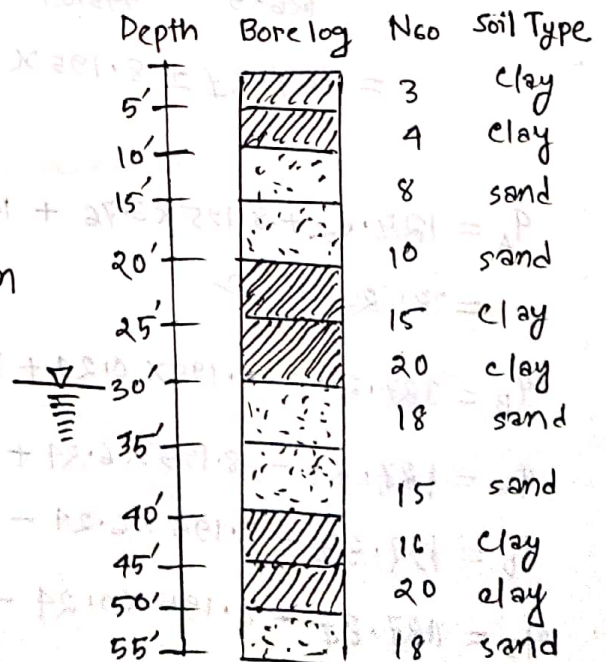 Depth Bore log N60 Soil Type
3 clay
5'
4 clay
10'
8 sand
15'
10 sand
20'
15 clay
25'
20 clay
30'
18 sand
35'
15 sand
40'
16 clay
45'
20 clay
50'
18 sand
55'
n